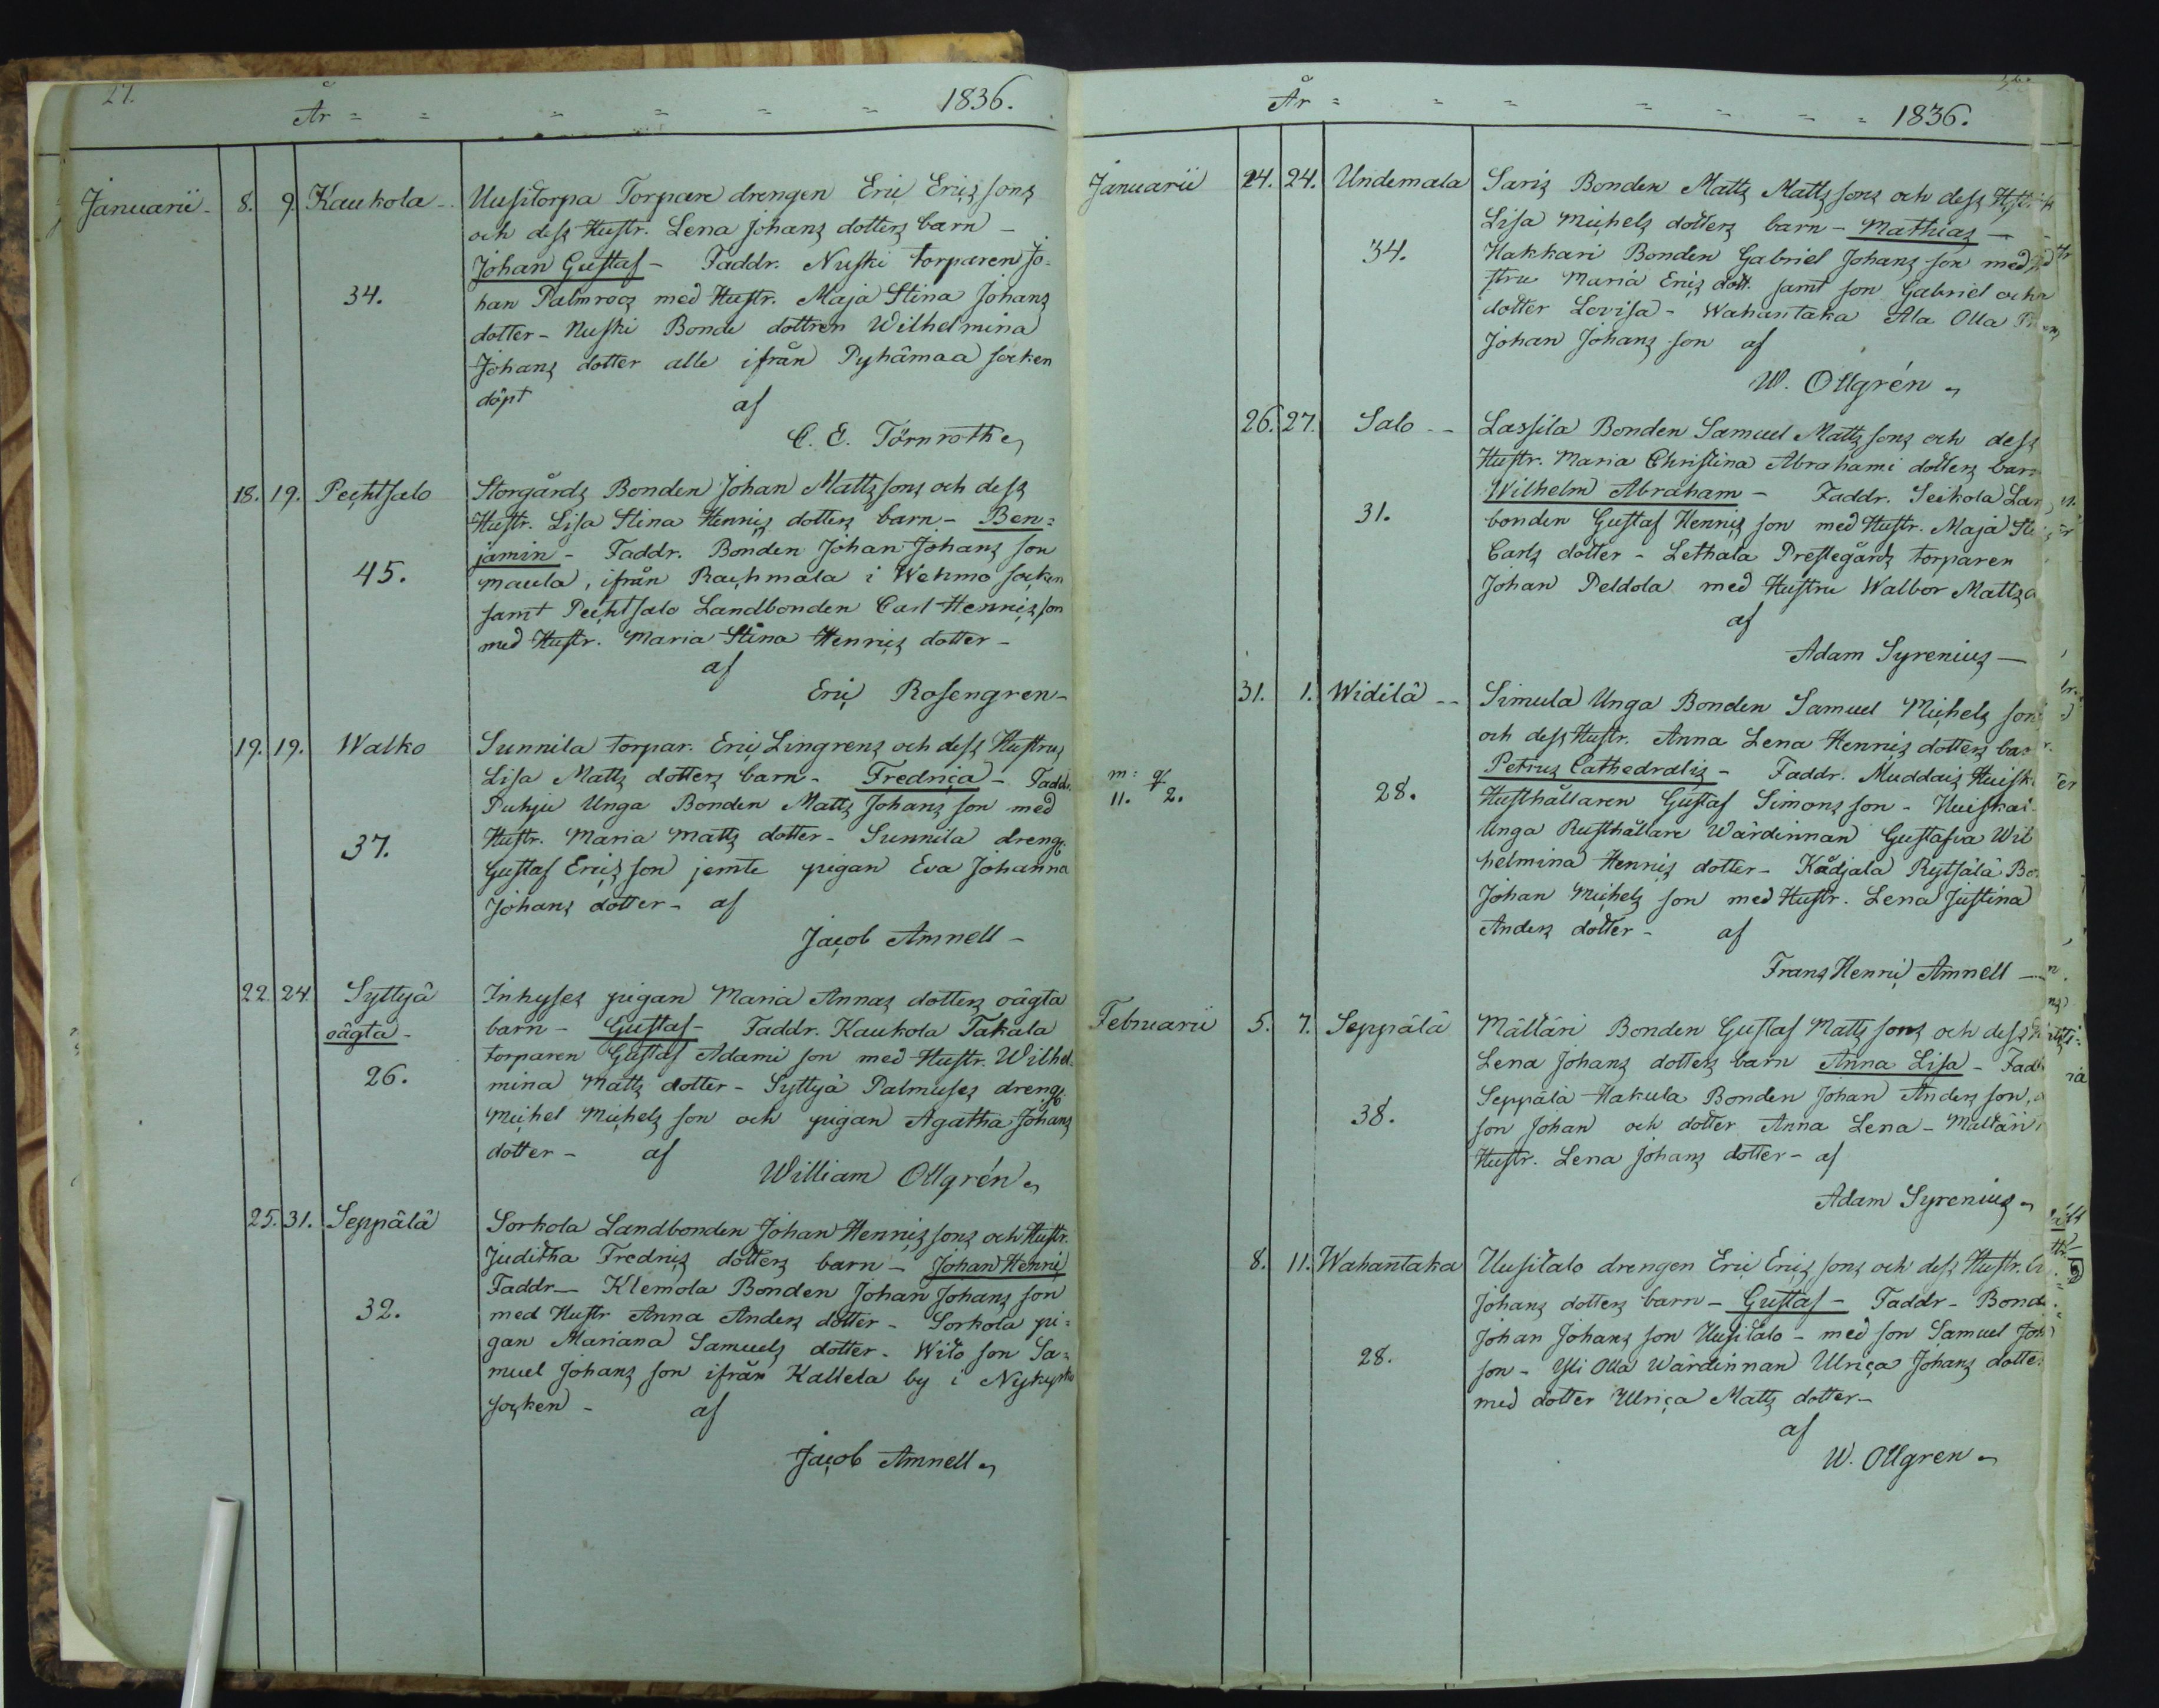 27.
År = = = = = = 1836.
Januarii - 8. 9. Kaukola - Uusitorpa Torpare drengen Eric Ericssons
och dess Hustr. Lena Johans dotters barn -
Johan Gustaf - Faddr. Nuski torparen Jo=
34. han Palmroos med Hustr. Maja Stina Johans
dotter - Nuski Bonde dottren Wilhelmina
Johans dotter alle ifrån Pyhämaa socken
döpt af
C. E. Törnroth
18. 19. Pechtsalo Storgårds Bonden Johan Mattssons och dess
Hustr. Lisa Stina Henrics dotters barn - Ben=
jamin - Faddr. Bonden Johan Johans son
45. Maula, ifrån Rachmala i Wehmo socken
samt Pechtsalo Landbonden Carl Henrics son
med Hustr. Maria Stina Henrics dotter -
af
Eric Rosengren -
19. 19. Walko Sunnila torpar. Eric Lingrens och dess Hustrus
Lisa Matts dotters barn - Fredrica - Faddr.
Puhju Unga Bonden Matts Johans son med
37. Hustr. Maria Matts dotter - Sunnila dreng.
Gustaf Erics son jemte pigan Eva Johanna
Johans dotter - af
Jacob Amnell -
22. 24. Syttyä Inhyses pigan Maria Annas dotters oägta
oägta - barn - Gustaf - Faddr. Kaukola Takala
torparen Gustaf Adami son med Hustr. Wilhel=
26. mina Matts dotter - Syttyä Palmuses dreng.
Michel Michels son och pigan Agatha Johans
dotter - af
William Ollgrén
25. 31. Seppälä Sorkola Landbonden Johan Henrics sons och Hustr.
Juditha Fredrics dotters barn - Johan Henric
Faddr - Klemola Bonden Johan Johans son
32. med Hustr Anna Anders dotter - Sorkola pi=
gan Mariana Samuels dotter - Wito son Sa=
muel Johans son ifrån Kallela by i Nykyrko
socken - af
Jacob Amnell
År = = = = = = 1836.
Januarii 24. 24. Undemala Saris Bonden Matts Mattssons och dess Hustr
Lisa Michels dotters barn - Mathias -
34. Hakkari Bonden Gabriel Johans son med
stru Maria Erics dott. samt son Gabriel och
dotter Lovisa - Wahantaka Ala Olla
Johan Johans son af
W. Ollgrén
26. 27. Salo - - Lassila Bonden Samuel Mattssons och dess
Hustr. Maria Christina Abrahami dotters barn
Wilhelm Abraham - Faddr. Seikola Lan
31. bonden Gustaf Henrics son med Hustr. Maja
Carls dotter - Lethala Prestegårds torparen
Johan Peldola med Hustru Walbor Matts
af
Adam Syrenius -
31. 1. Widilä - - Simula Unga Bonden Samuel Michels sons
och dess Hustr. Anna Lena Henrics dotters bar
Petrus Cathedralis - Faddr. Muddais Huisk
m:
11. 2.
28. Husthållaren Gustaf Simons son - Huiskai
Unga Rusthållare Wärdinnan Gustafva Wil
helmina Henrics dotter - Kådjala Rytsälä Bo
Johan Michels son med Hustr. Lena Justina
Anders dotter - af
Frans Henric Amnell -
Februarii 5. 7. Seppälä Mältäri Bonden Gustaf Matts sons och dess
Lena Johans dotters barn Anna Lisa - Fadd
Seppälä Hakula Bonden Johan Anders son,
38. son Johan och dotter Anna Lena - Mältäri
Hustr. Lena Johans dotter - af
Adam Syrenius
8. 11. Wahantaka Uusitalo drengen Eric Erics sons och dess Hustr.
Johans dotters barn - Gustaf - Faddr - Bond
Johan Johans son Uusitalo - med son Samuel Joh
28. son - Yli Olla Wärdinnan Ulrica Johans dotter
med dotter Ulrica Matts dotter -
af
W. Ollgren